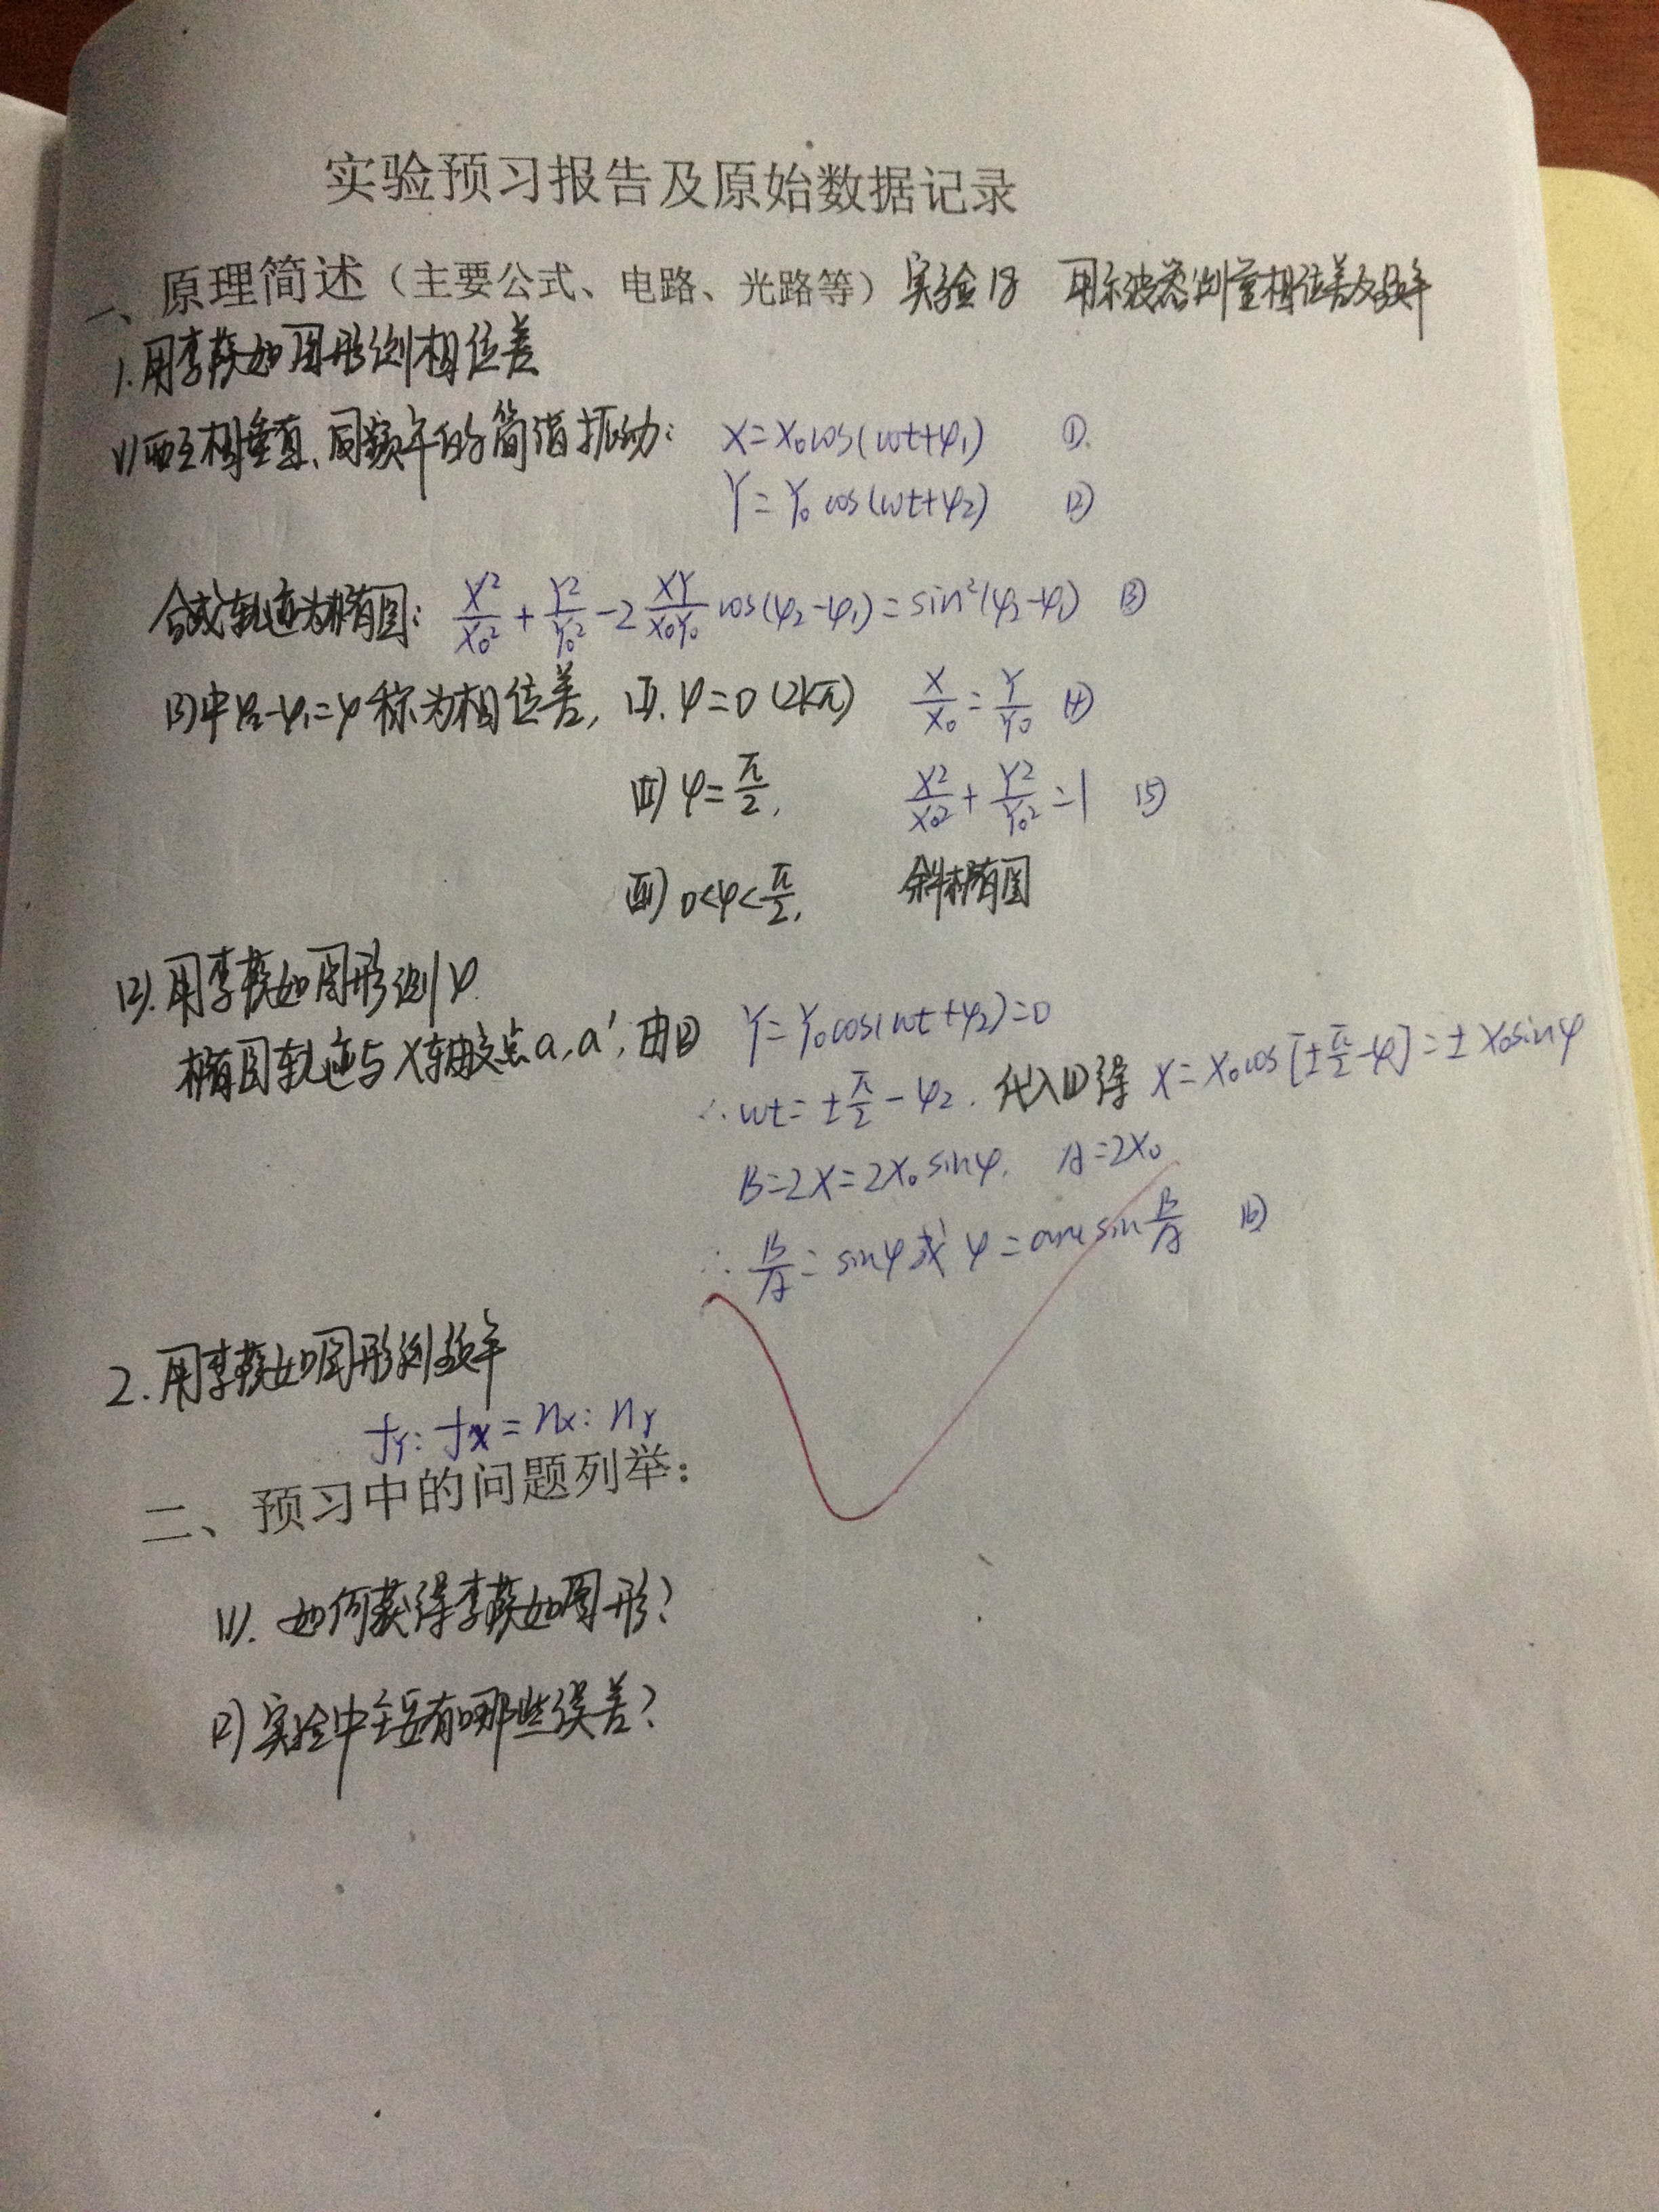 实验预习报告及原始数据记录
一、原理简述（主要公式、电路、光路等） 实验18 用示波器测量相位差及频率
1.用李萨如图形测相位差
(1)两互相垂直、同频率的简谐振动： X=X₀cos(ωt+φ₁) ①
Y=Y₀cos(ωt+φ₂) (2)
合成轨迹为椭圆： X²/X₀² + Y²/Y₀² - 2 XY/X₀Y₀ cos(φ₂-φ₁) = sin²(φ₂-φ₁) (3)
(3)中φ₂-φ₁=φ称为相位差, (I). φ=0 (2kπ) X/X₀ = Y/Y₀ (4)
(II) φ=π/2, X²/X₀² + Y²/Y₀² = 1 (5)
(III) 0<φ<π/2, 斜椭圆
(2).用李萨如图形测φ
椭圆轨迹与X轴交点a,a′,由② Y=Y₀cos(ωt+φ₂)=0
∴ωt=±π/2-φ₂. 代入(1)得 X=X₀cos[±π/2-φ]=±X₀sinφ
B=2X=2X₀sinφ, A=2X₀
∴ B/A = sinφ 或 φ=arcsin B/A (6)
2.用李萨如图形测频率
fY:fX=nX:nY
二、预习中的问题列举：
(1).如何获得李萨如图形?
(2)实验中主要有哪些误差?